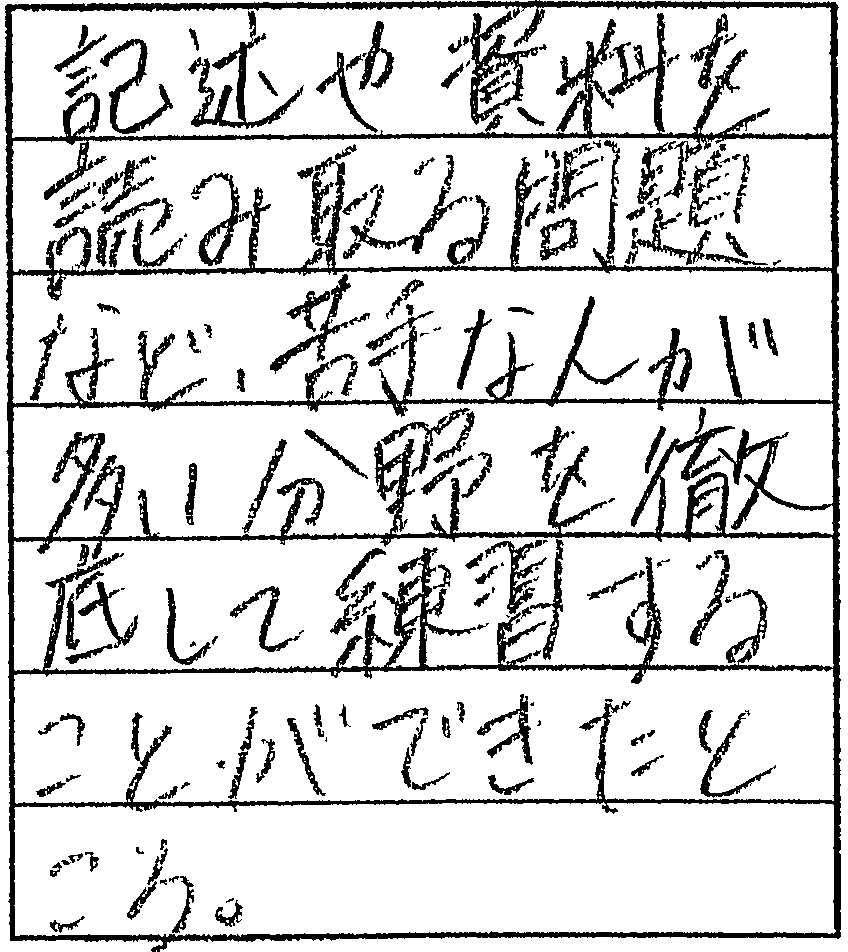 記述や資料を
読み取る問題
など、苦手なんが
多い分野を徹
底して練習する
ことができたと
ころ。